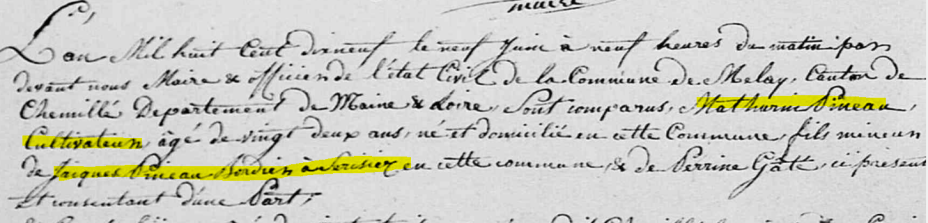 maire
L'an Mil huit Cent dixneuf le neuf Juin à neuf heures du matin par
devant nous Maire & officier de l'état Civil de la Commune de Melay, Canton de
Chemillé Departement de Maine & Loire, Sont comparus, Mathurin Pineau,
Cultivateur, âgé de vingt deux ans, né et domicilié en cette Commune, fils mineur
de Jacques Pineau Bordier à en cette commune, & de Perrine Gâté, ci présent
Et consentant d'une Part,